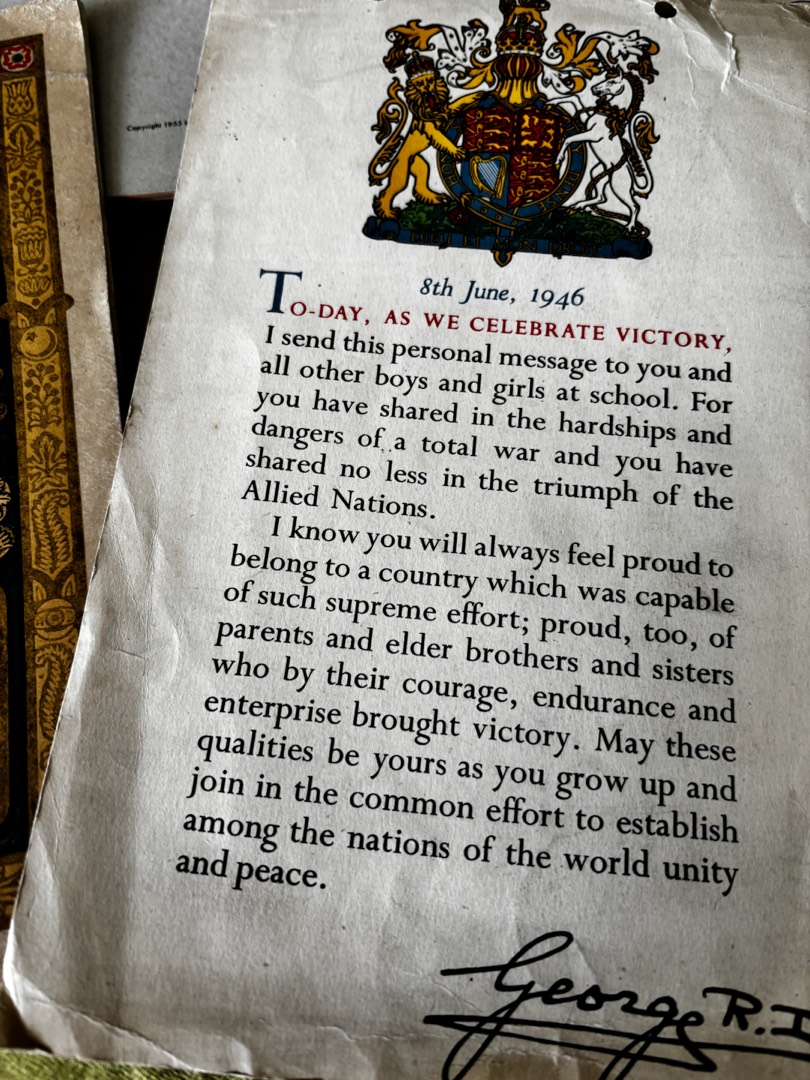 Copyright 1953
DIEU ET MON DROIT
8th June, 1946
TO-DAY, AS WE CELEBRATE VICTORY,
I send this personal message to you and
all other boys and girls at school. For
you have shared in the hardships and
dangers of a total war and you have
shared no less in the triumph of the
Allied Nations.
I know you will always feel proud to
belong to a country which was capable
of such supreme effort; proud, too, of
parents and elder brothers and sisters
who by their courage, endurance and
enterprise brought victory. May these
qualities be yours as you grow up and
join in the common effort to establish
among the nations of the world unity
and peace.
George R.I